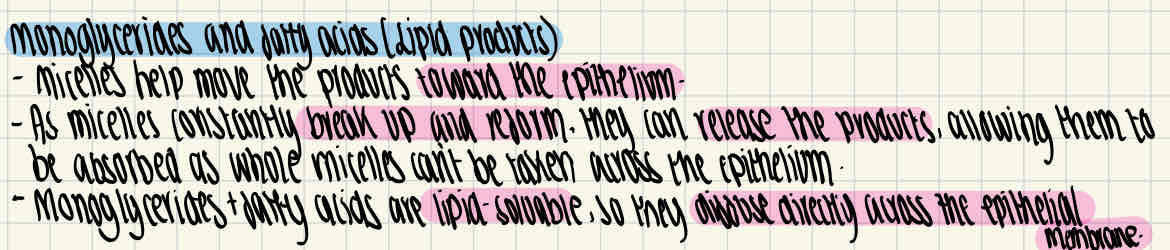 monoglycerides and fatty acids (Lipid products)
- micelles help move the products toward the epithelium.
- As micelles constantly break up and reform, they can release the products, allowing them to
be absorbed as whole micelles can't be taken across the epithelium.
- Monoglycerides + fatty acids are lipid-soluable, so they diffuse directly across the epithelial
membrane.